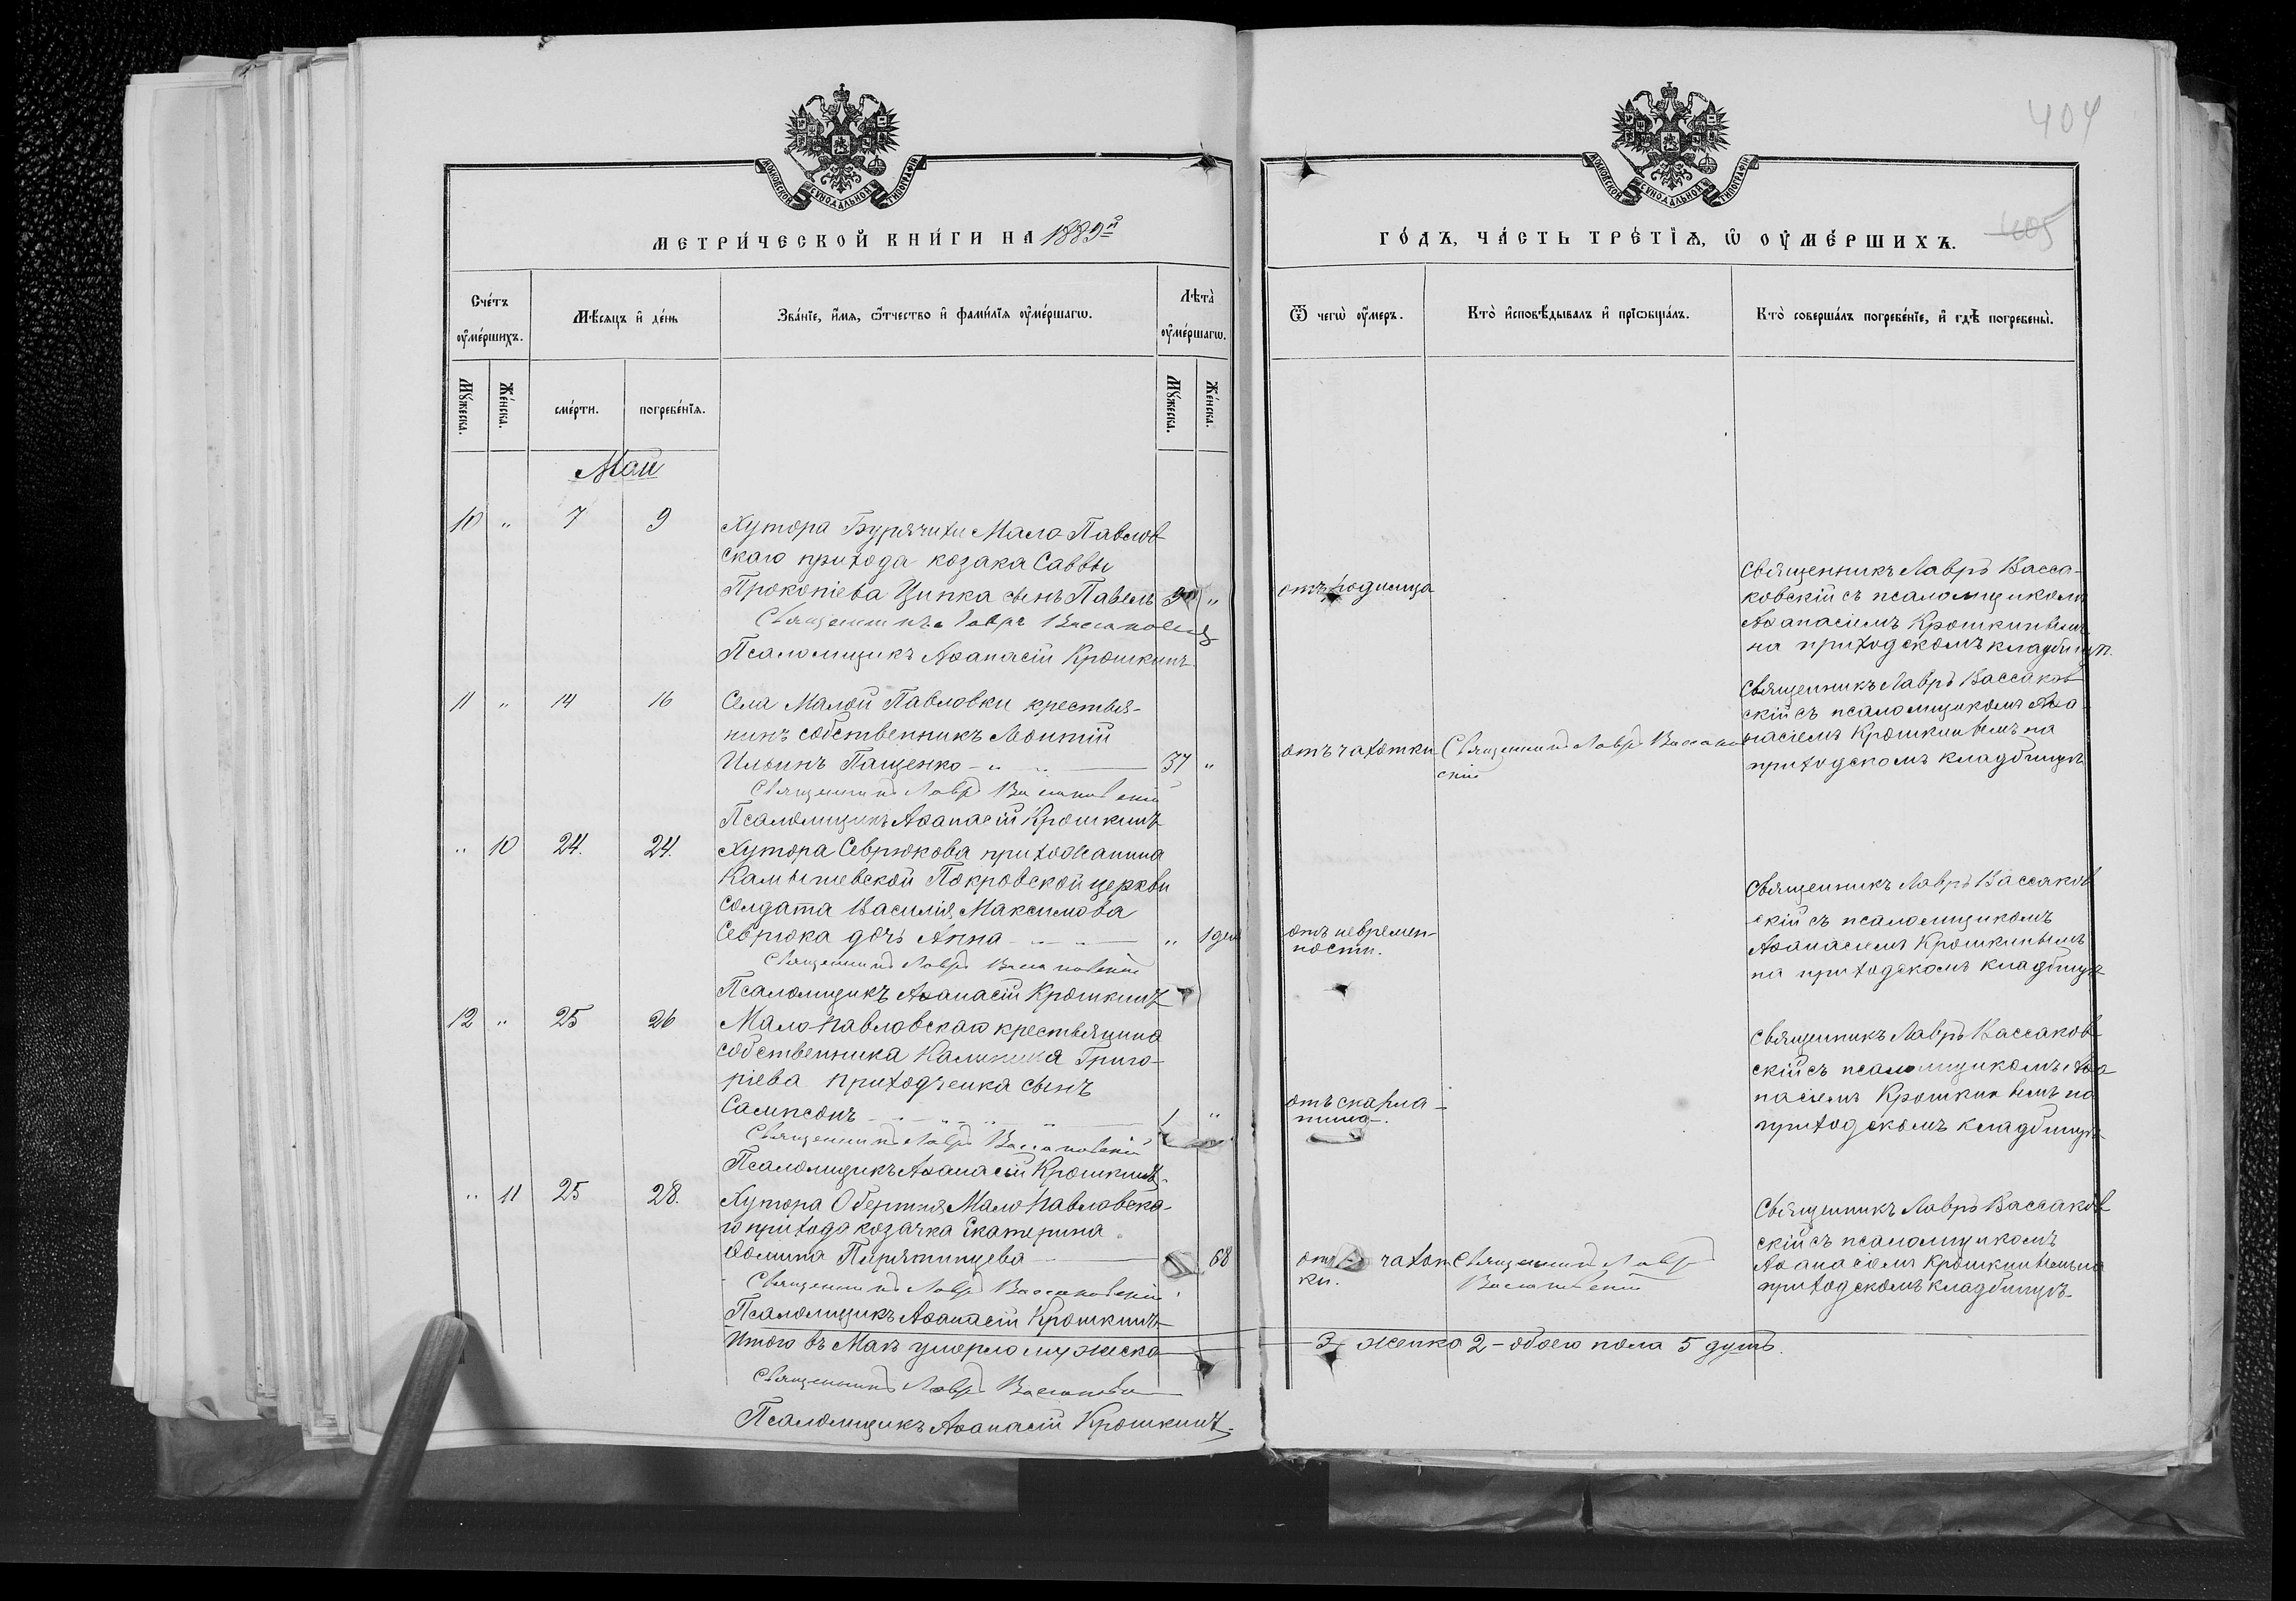 404
405
МОСКОВСКОЙ СѴНОДАЛЬНОЙ ТИПОГРАФІИ
МОСКОВСКОЙ СѴНОДАЛЬНОЙ ТИПОГРАФІИ
МЕТРИ́ЧЕСКОЙ КНИ́ГИ НА 1889й
ГО́ДЪ, ЧА́СТЬ ТРЕ́ТІѦ, Ѡ ОУМЕ́РШИХЪ.
Сче́тъ оуме́ршихъ.
Мѣ́сяцъ и де́нь
Зва́ніе, и́мя, ѻ́тчество и фами́лія оуме́ршагѡ.
Лѣта̀ оуме́ршагѡ.
Ѿ чегѡ̀ оу́меръ.
Кто̀ и҆сповѣ́дывалъ и҆ пріѡбща́лъ.
Кто̀ соверша́лъ погребе́ніе, и҆ гдѣ̀ погребены̀.
Мꙋ́жеска.
Же́нска.
сме́рти.
погребе́нія.
Мꙋ́жеска.
Же́нска.
Май
10 " 7 9 Хутора Бурячихи Мало Павлов
скаго прихода козака Саввы
Прокопіева Ципка сынъ Павелъ "
Священникъ Лавръ Вассаковскій
Псаломщикъ Аѳанасій Крошкинъ
отъ родимца
Священникъ Лавръ Васса-
ковскій съ псаломщикомъ
Аѳанасіемъ Крошкинымъ
на приходскомъ кладбищѣ.
11 " 14 16 Села Малой Павловки крестья-
нинъ собственникъ Леонтій
Ильинъ Пащенко - " - 37 "
Священникъ Лавръ Вассаковскій
Псаломщикъ Аѳанасій Крошкинъ
отъ чахотки
Священникъ Лавръ Вассаков
скій
Священникъ Лавръ Вассаков
скій съ псаломщикомъ Аѳа
насіемъ Крошкинымъ на
приходскомъ кладбищѣ
" 10 24. 24. Хутора Севрюкова прихожанина
Камышевской Покровской церкви
солдата Василія Максимова
Севрюка дочь Анна " 1 дня
Священникъ Лавръ Вассаковскій
Псаломщикъ Аѳанасій Крошкинъ
отъ неврeмен-
ности.
Священникъ Лавръ Вассаков
скій съ псаломщикомъ
Аѳанасіемъ Крошкинымъ
на приходскомъ кладбищѣ
12 " 25 26 Мало Павловскаго крестьянина
собственника Калиника Григо-
ріева Приходченка сынъ
Сампсонъ 1 "
Священникъ Лавръ Вассаковскій
Псаломщикъ Аѳанасій Крошкинъ
отъ скарла-
тина.
Священникъ Лавръ Вассаков
скій съ псаломщикомъ Аѳа
насіемъ Крошкинымъ на
приходскомъ кладбищѣ
" 11 25 28. Хутора Мало Павловска-
го прихода козачка Екатерина
Ѳомина Пирятинцева 68
Священникъ Лавръ Вассаковскій
Псаломщикъ Аѳанасій Крошкинъ
отъ чахот
ки.
Священникъ Лавръ
Вассаковскій
Священникъ Лавръ Вассаков
скій съ псаломщикомъ
Аѳанасіемъ Крошкинымъ на
приходскомъ кладбищѣ
Итого въ Маѣ умерло мужеска 3, женска 2 - обоего пола 5 душъ.
Священникъ Лавръ
Псаломщикъ Аѳанасій Крошкинъ